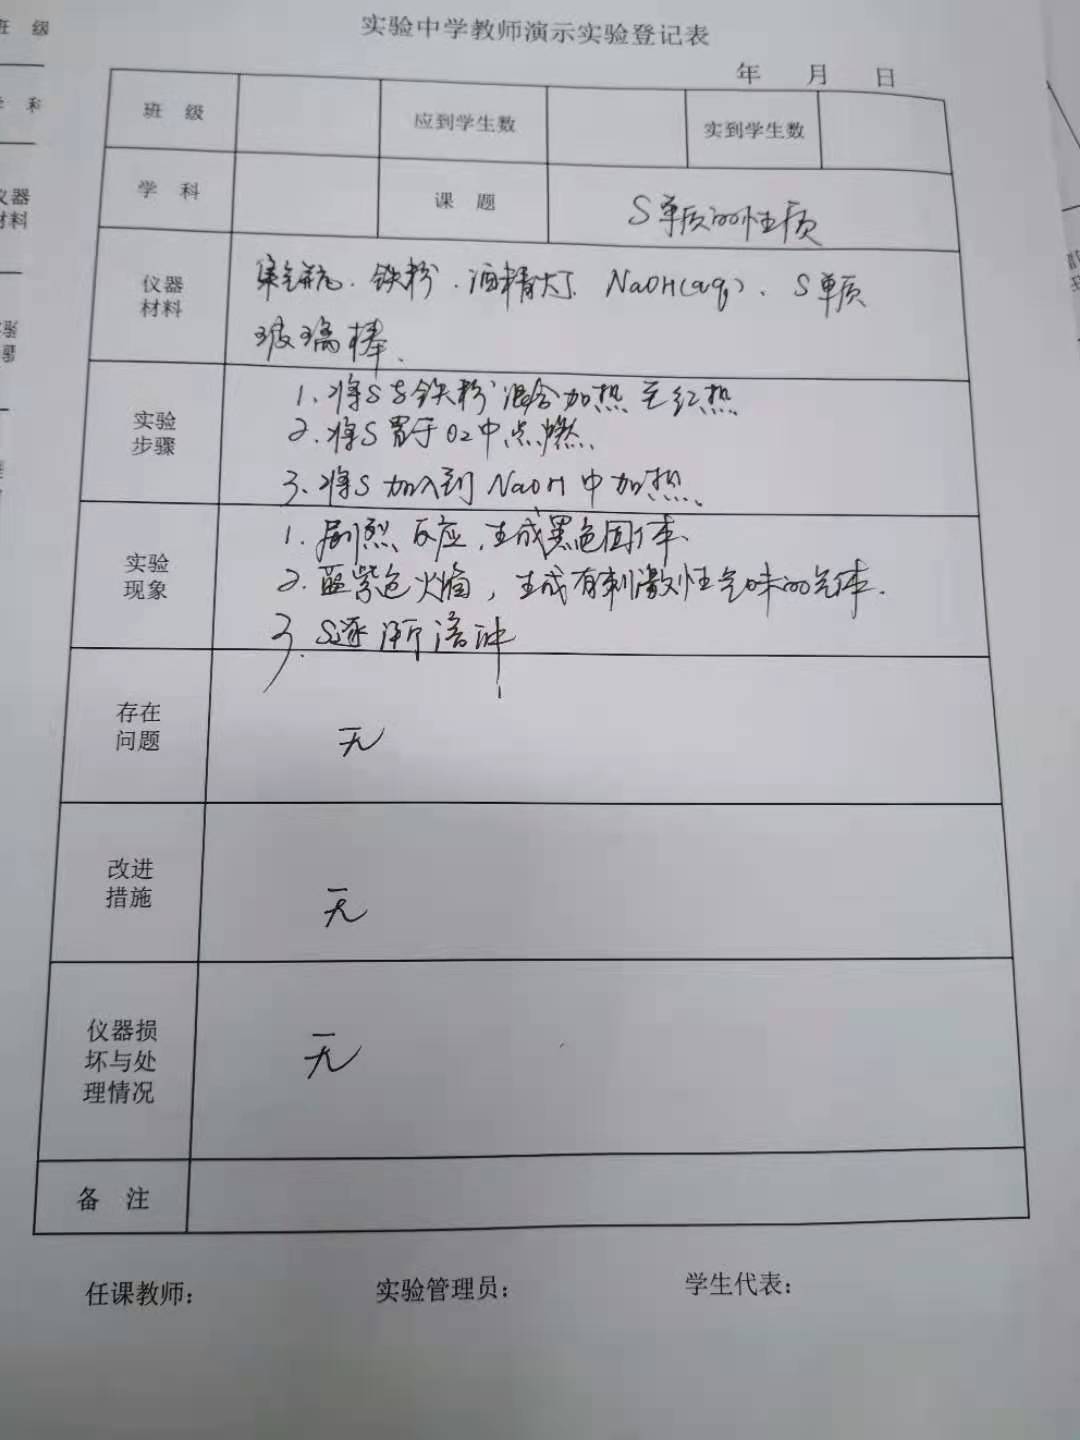 实验中学教师演示实验登记表
年 月 日
班 级 应到学生数 实到学生数
学 科 课 题 S单质的性质
仪器材料 集气瓶、铁粉、酒精灯、NaOH(aq)、S单质
玻璃棒、
实验步骤 1.将S与铁粉混合加热至红热
2.将S置于O2中点燃、
3.将S加入到NaOH中加热、
实验现象 1.剧烈反应,生成黑色固体、
2.蓝紫色火焰,生成有刺激性气味的气体.
3.S逐渐溶
存在问题 无
改进措施 无
仪器损坏与处理情况 无
备 注
任课教师: 实验管理员: 学生代表:
班 级
学 科
仪器
材料